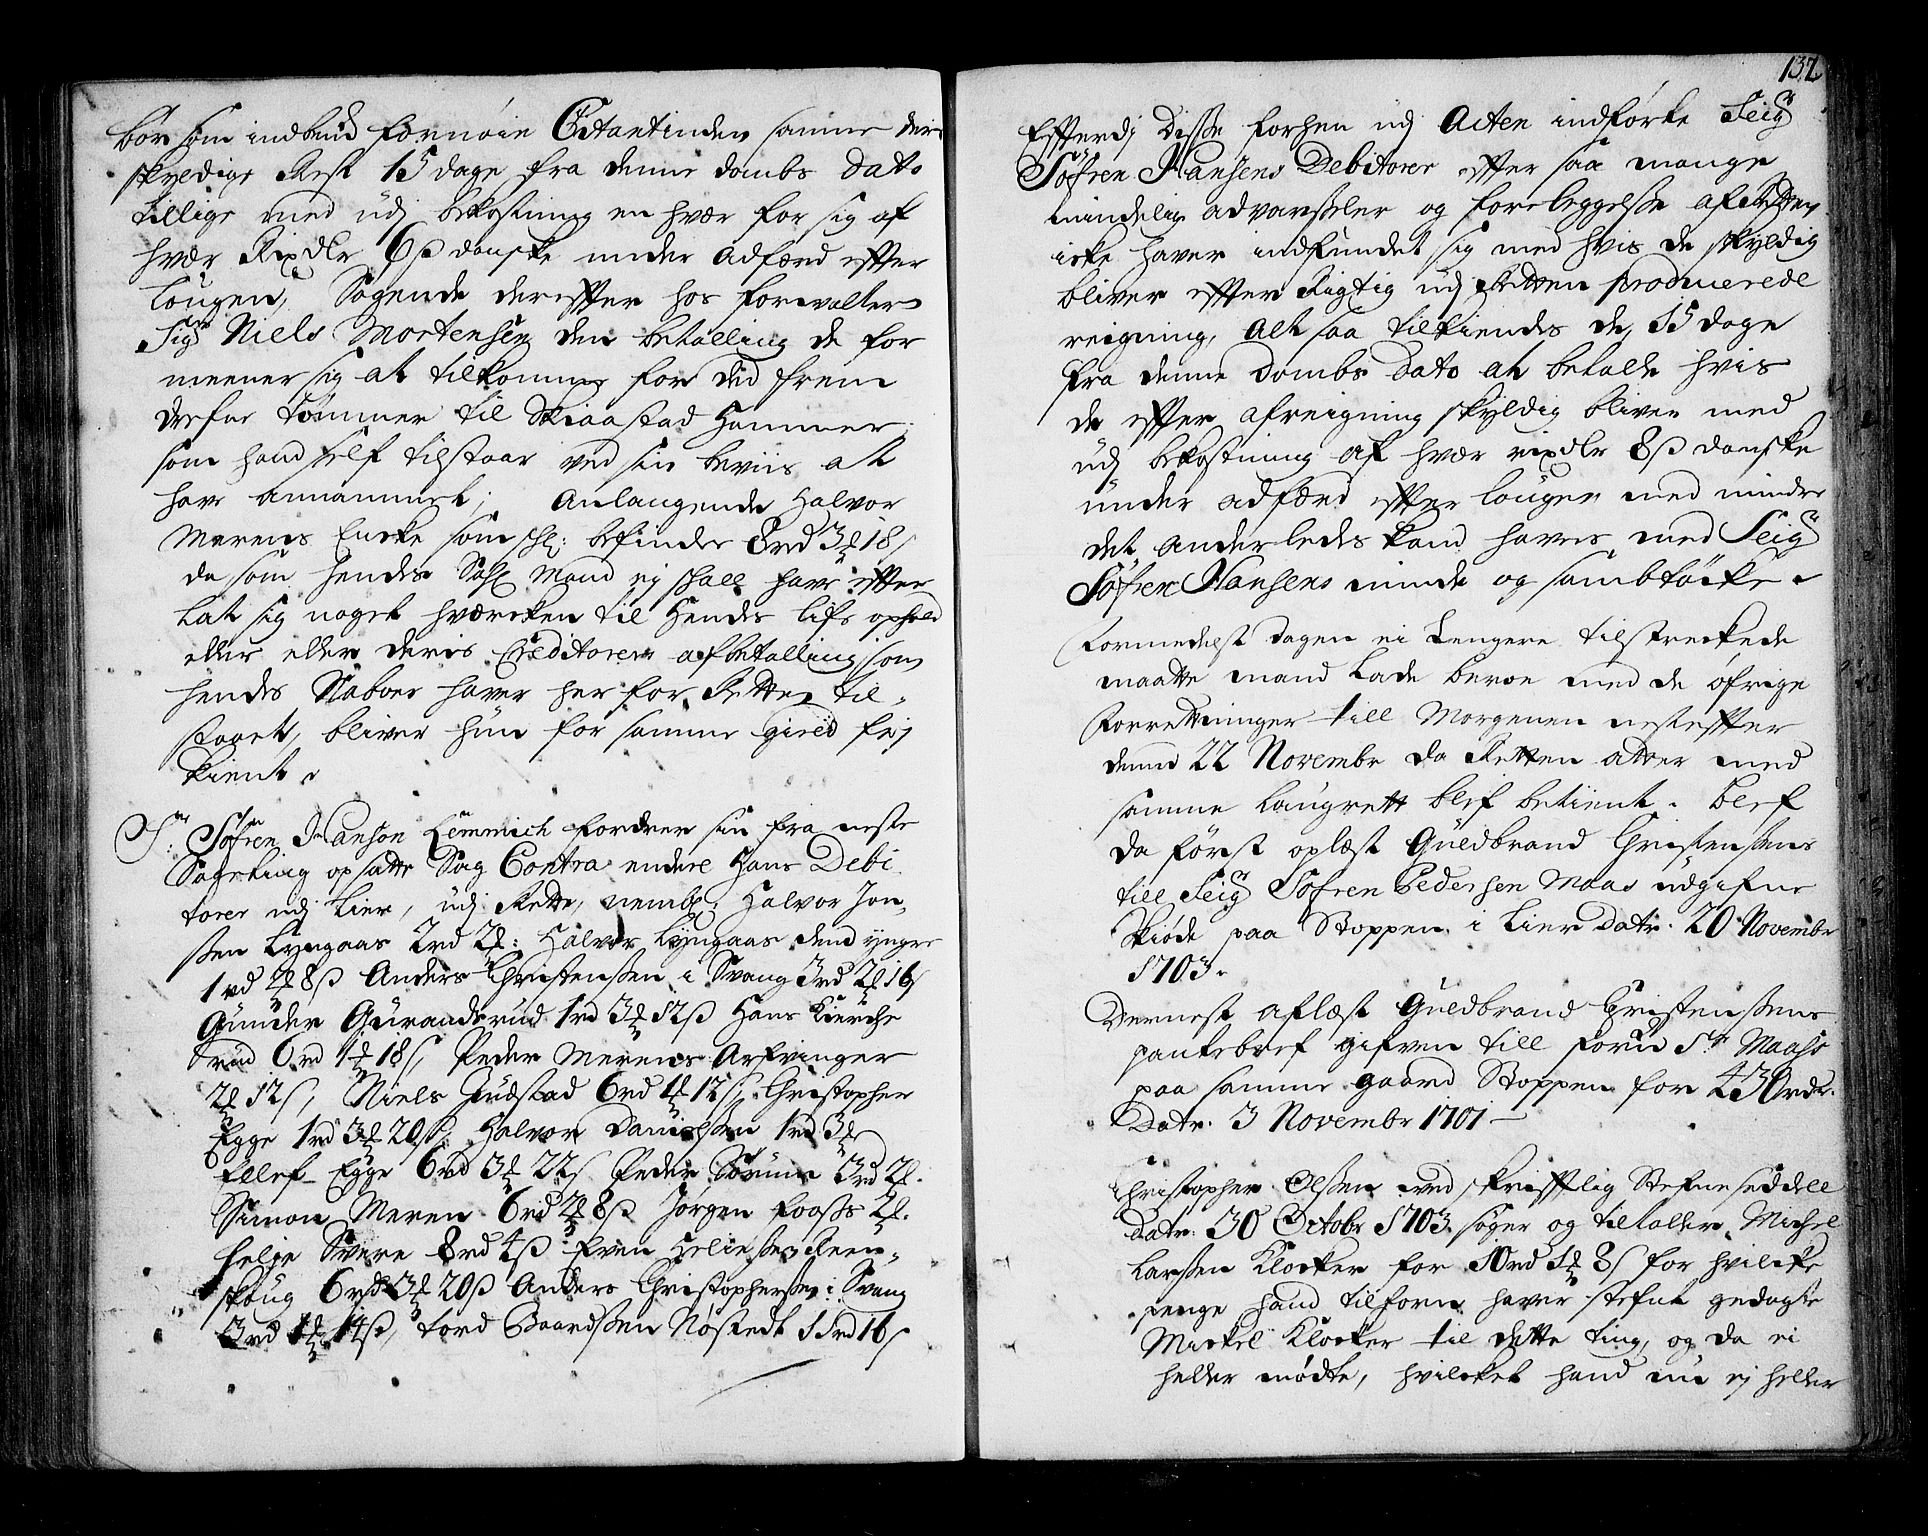 bør som indbemt fornøie Citantinden samme deris
skyldige Rest 15 dage fra denne dombs dato
tillige med udj bekostning en hver for sig af
hver Rixdlr 6 ß danske under adferd effter
Lougen, Søgende dereffter hos forvalter
Sigr Niels Mortensen den betalling de for
meener sig at tilkomme for ded frem
drefne tømmer til Skiaastad Hammer
som hand self tilstaar ved sin beviis at
have annammet; Anlangende Halvor
Merens Encke som schl: befindes 8rd 3 ₰ 18 s
da som hendes Sahl Mand ej schall have effter
lat sig noget hvercken til hendes lifs ophold
eller deris Creditorers afbetalling som
hendes Naboer haver her for Retten til,
staaet, bliver hun for samme gield frj
kient.
Sr: Søfren Hanson Lemmich fordrer sin fra neste
Sageting opsatte Sag Contra endeel Hans Debi
torer udj Lier, udj Rette, nembl: Halvor Jon,
ßen Lyngaas 2rd 2 ₰: Halvor Lyngaas dend yngre
1rd 2 ₰ 8 ß Anders Christenßen i Svang 3rd 2 ₰ 16 s
Gunder Gurandsrud 1rd 3 ₰ 12 ß Hans Kierche
rud 6rd 1 ₰ 18 s, Peder Merens Arfvinger
2 ₰ 12 s, Niels Gudstad 6rd 1 ₰ 12 s, Christopher
Egge 1rd 3 ₰ 20 s, Halvor Danielßen 1rd 3 ₰
Ellef Egge 6rd 3 ₰ 22 s Peder Sørum 3rd 2 ₰.
Simon Meren 6rd 2 ₰ 8 ß Jørgen Foosß 2 ₰.
Helje Svere 8rd 4 ß Even Heließen Reen,
skoug 6rd 3 ₰ 20 ß Anders Christopherßen i Svang
3rd 1 ₰ 14 ß, tord Baardßen Nøstedt 11rd 16 s
132
Effterdj Disße forhen udj Acten indførte Seigr
Søfren Hansens Debitorer effter saa mange
mindelige advarßeler og foreleggelße af Retten
icke haver indfundet sig med hvis de skyldig
bliver effter Rigtig udj Retten producerede
reigning, Alt saa tilkiendes de, 15 dage
fra denne Dombs Dato at betalle hvis
de effter afreigning skyldig bliver med
udj bekostning af hver rixdlr 8 ß danske
under adferd effter lougen med mindre
det anderledes kand haves med Seigr
Søfren Hansens minde og sambtøcke.
Formedelst dagen ei lengere tilstreckede
maatte mand lade beroe med de øfrige
Forretninger till Morgenen nesteffter
denne 22 Novembr da Retten atter med
samme laugrett blef betient. blef
da først oplæst Guldbrand Christenßens
till Seigr Søfren Pedersen Maas udgifne
Skiøde paa Stoppen i Lier Datr. 20 Novembr
1703.
Dernest aflæst Guldbrand Christenßens
pantebref gifven till forn Sr Maass
paa samme gaard Stoppen for 430 rdr.
Datr. 3 Novembr 1701 —
Christopher Olßen ved skrifftlig Stefneseddell
Datr. 30 Octobr 1703 søger og tiltaller Michel
Larßen Klocker for 10rd 1 ₰ 8 s for hvilcke
penge hand tilforn haver stefnt gedagte
Mickel Klocker til dette ting, og da ei
heller mødte, hvilcket hand nu ej heller